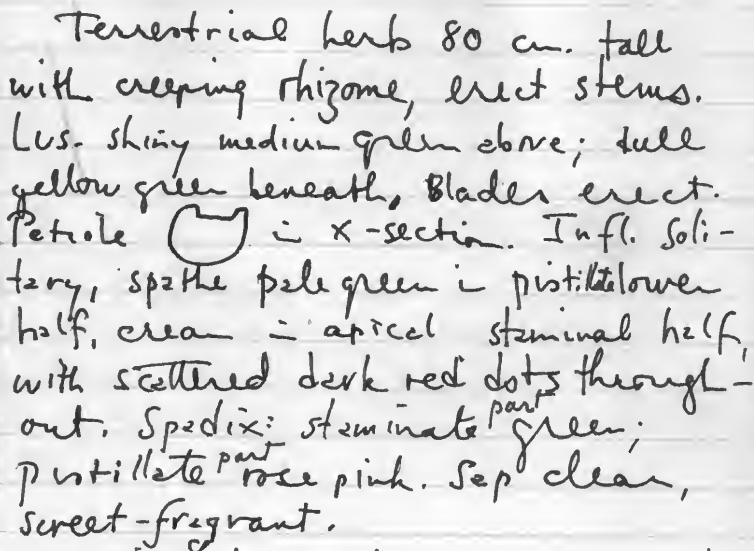 Terrestrial herb 80 cm. tall
with creeping rhizome, erect stems.
Lvs. shiny medium green above; dull
yellow green beneath, Blades erect.
Petiole in x-section. Infl. Soli-
tary, spathe pale green in pistillate lower
half, cream in apical staminal half,
with scattered dark red dots through-
out. Spadix: staminate part green;
pistillate part rose pink. Sap clear,
sweet-fragrant.